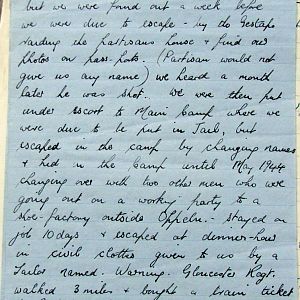 but we were found out a week before
we were due to escape - by do Gestapo
raiding the partisans house & find our
photos on pass-ports. (Partisan would not
give us any name) we heard a month
later he was shot. We were then put
under Escort to Main Camp where we
were due to be put in Jail, but
escaped in the camp by changing names
& hid in the Camp until May 1944
changing over with two other men who were
going out on a working party to a
shoe-factory outside Oppeln. - stayed on
job 10 days & escaped at dinner-hour
in civil clothes given to us by a
Tailor named. Warning. Gloucester Regt.
walked 3 miles & bought a train ticket